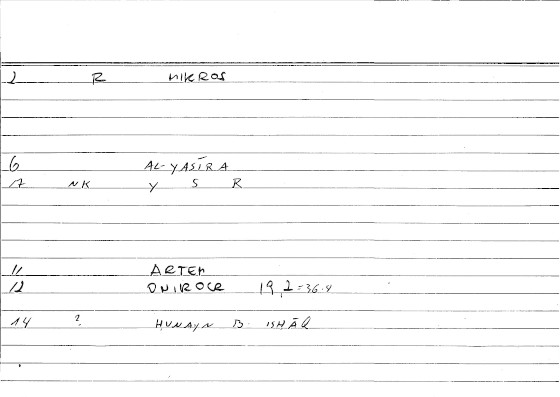 2 R MIKROS
6 AL-YASĪRA
7 NK Y S R
11 ARTEM
12 ONIROCR 19,2=36.4
14 ? HUNAYN B. ISHĀQ